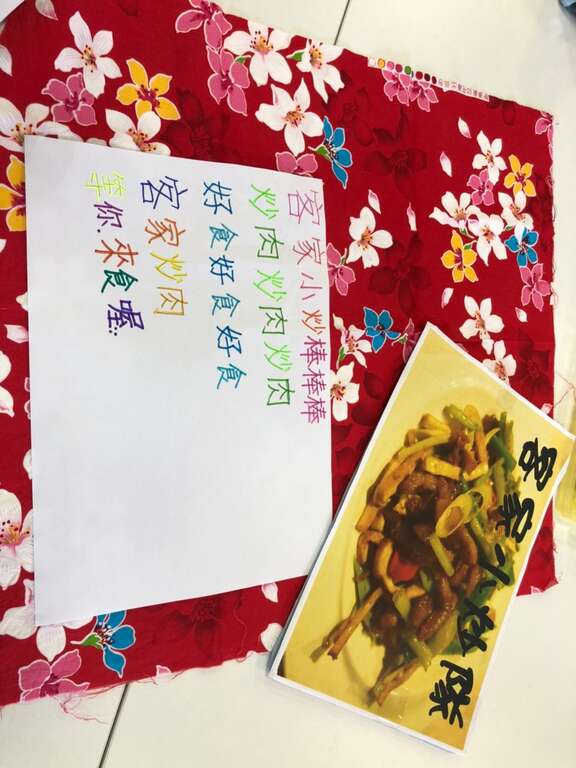 客家小炒棒棒棒
炒肉炒肉炒肉
好食好食好食
客家炒肉
等你來食喔:
客家小炒隊